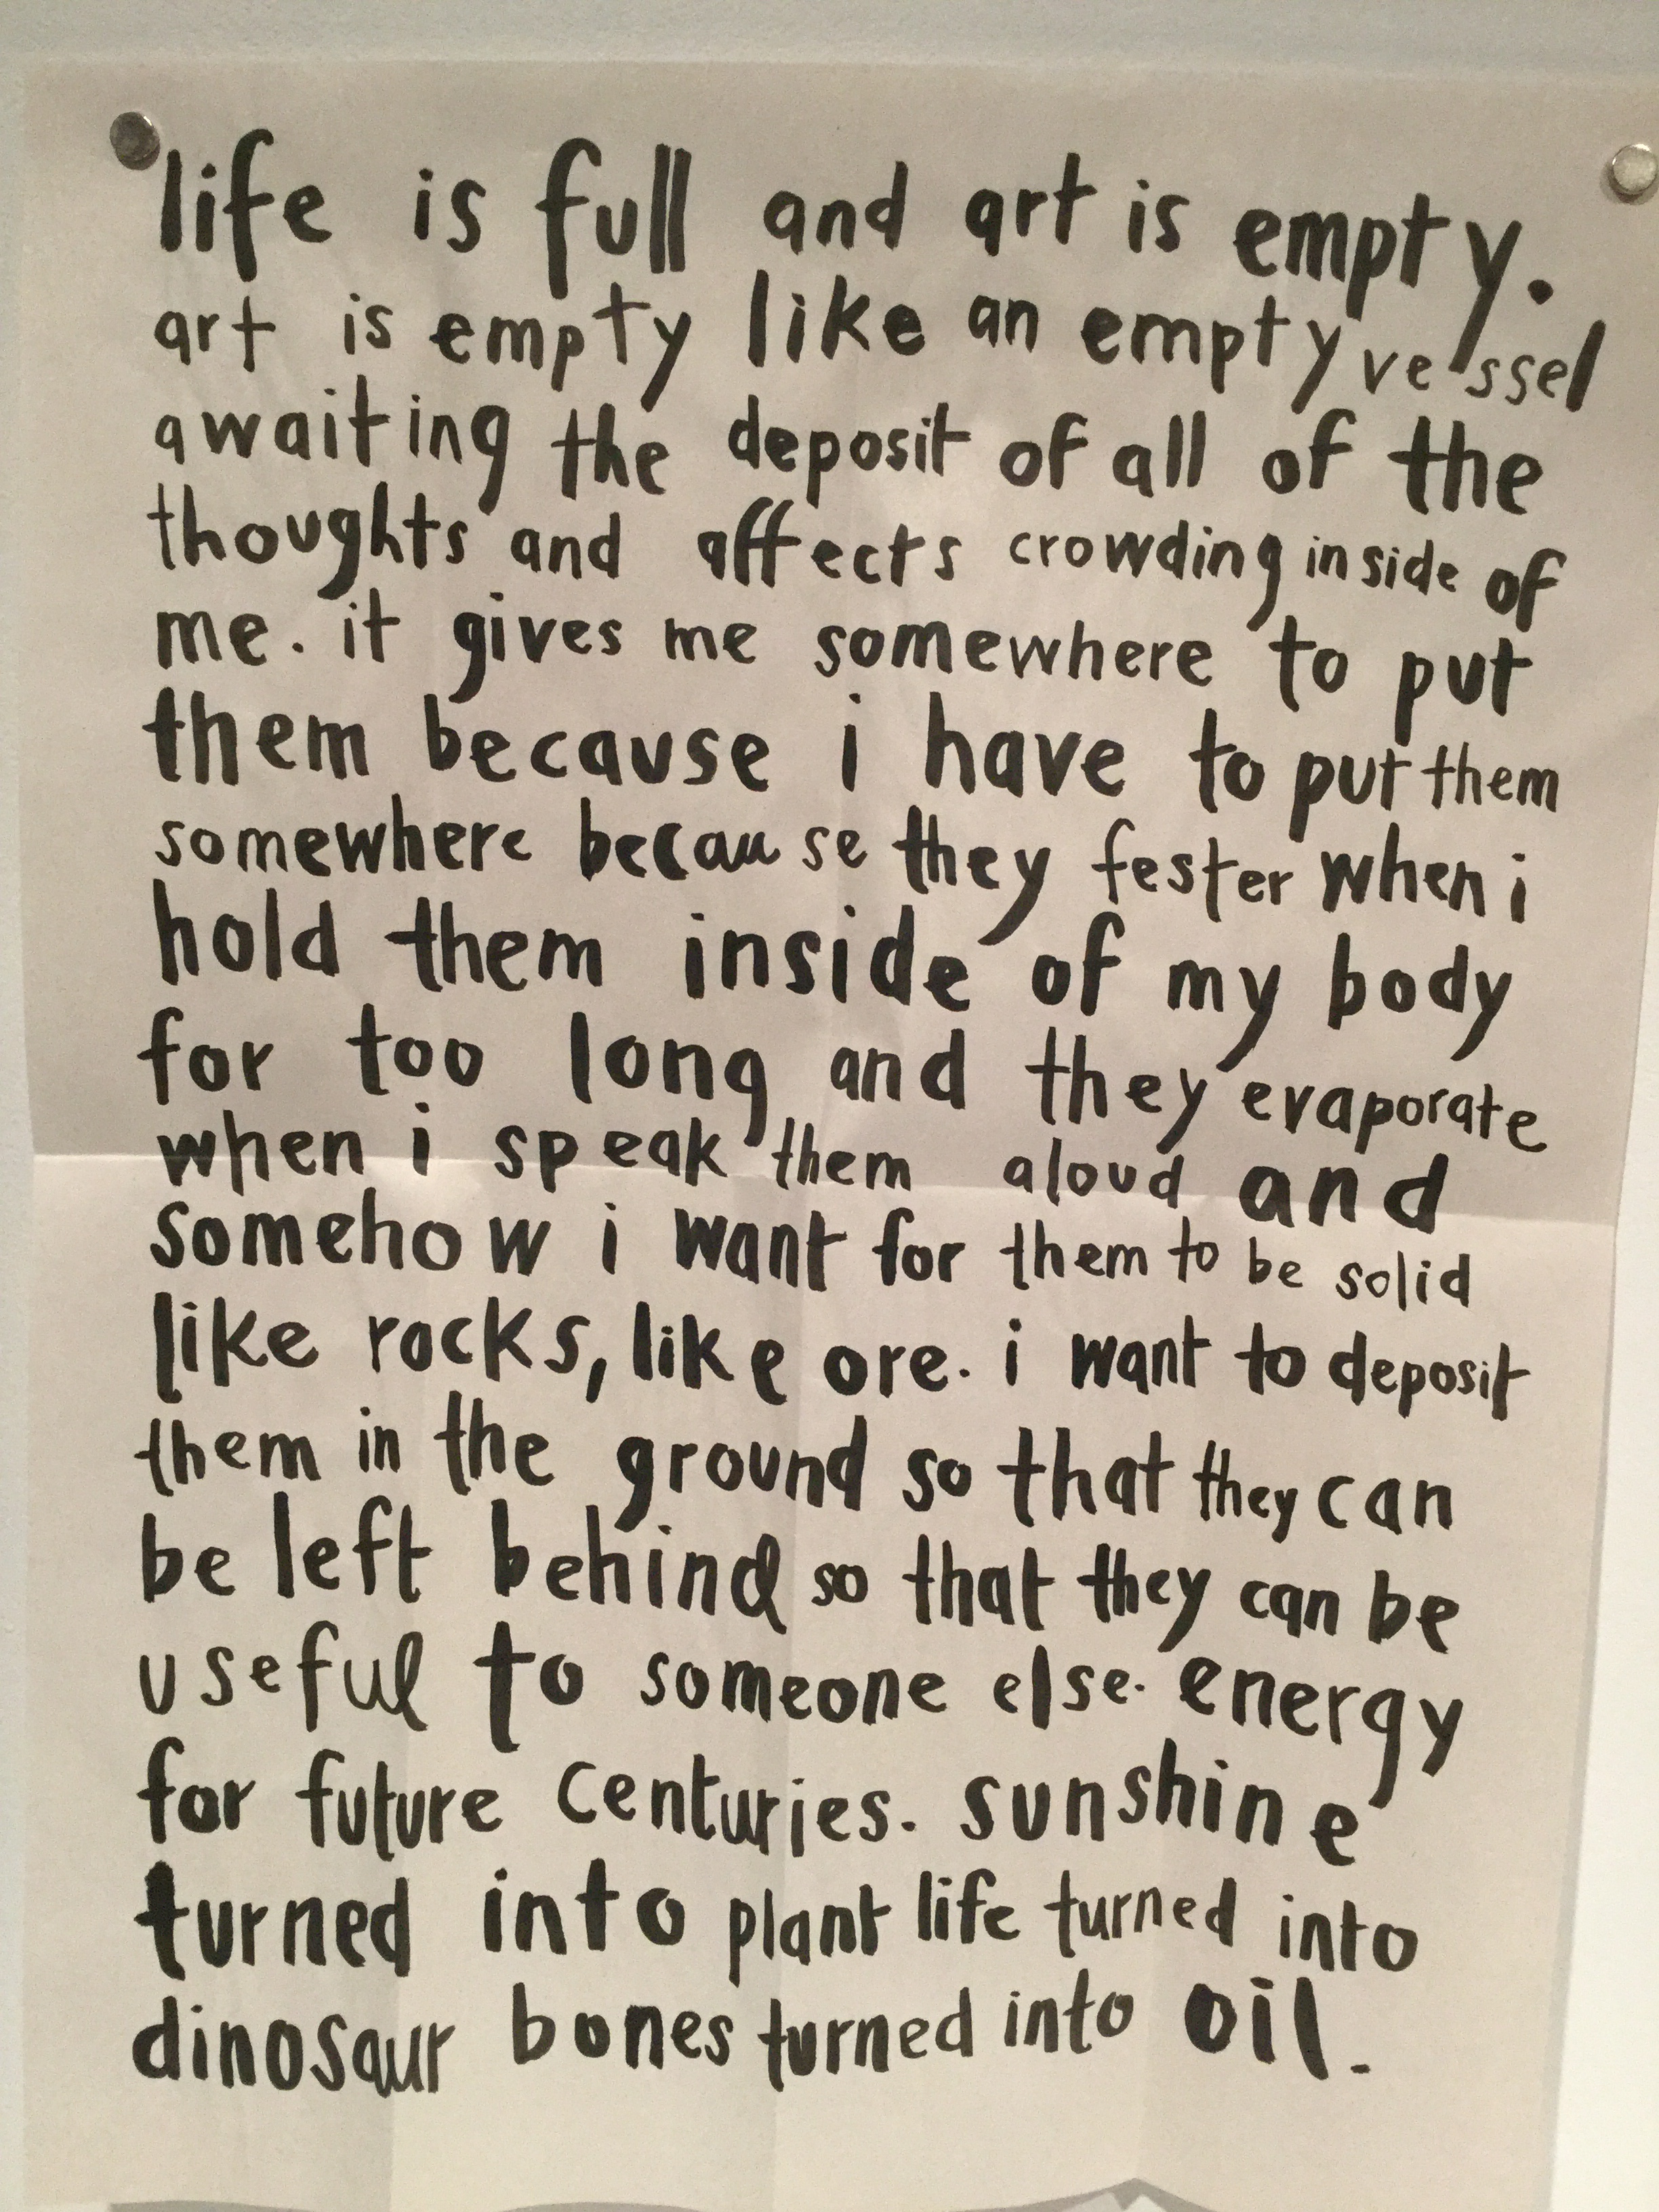 life is full and art is empty.
art is empty like an empty vessel
awaiting the deposit of all of the
thoughts and affects crowding inside of
me. it gives me somewhere to put
them because i have to put them
somewhere because they fester when i
hold them inside of my body
for too long and they evaporate
when i speak them aloud and
somehow i want for them to be solid
like rocks, like ore. i want to deposit
them in the ground so that they can
be left behind so that they can be
useful to someone else. energy
for future centuries. sunshine
turned into plant life turned into
dinosaur bones turned into oil.